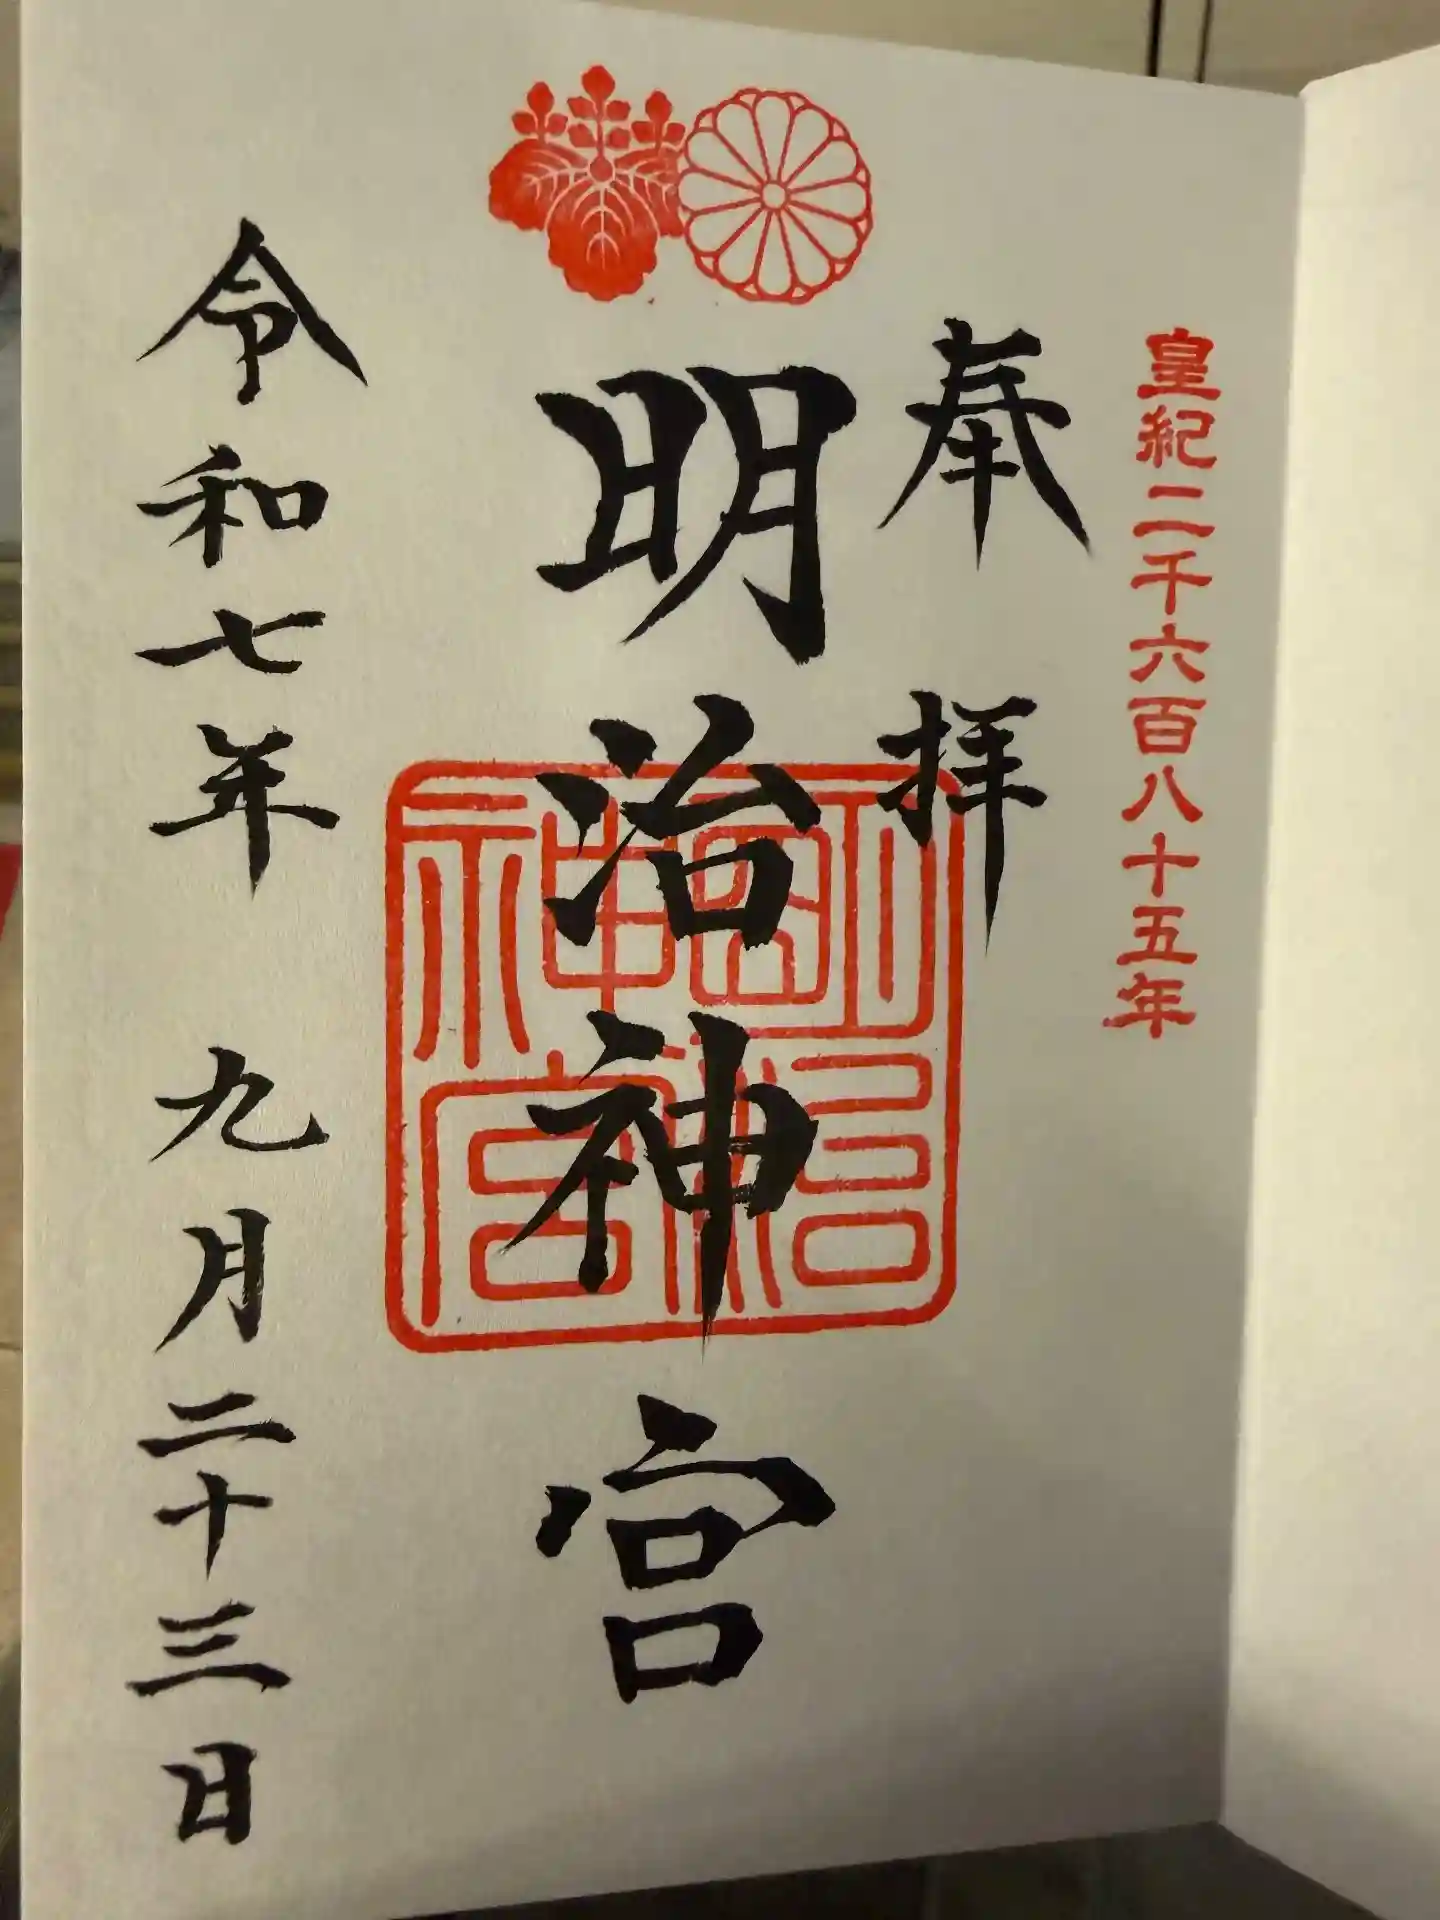 皇紀二千六百八十五年
奉拝
明治神宮
明治神宮
令和七年 九月二十三日